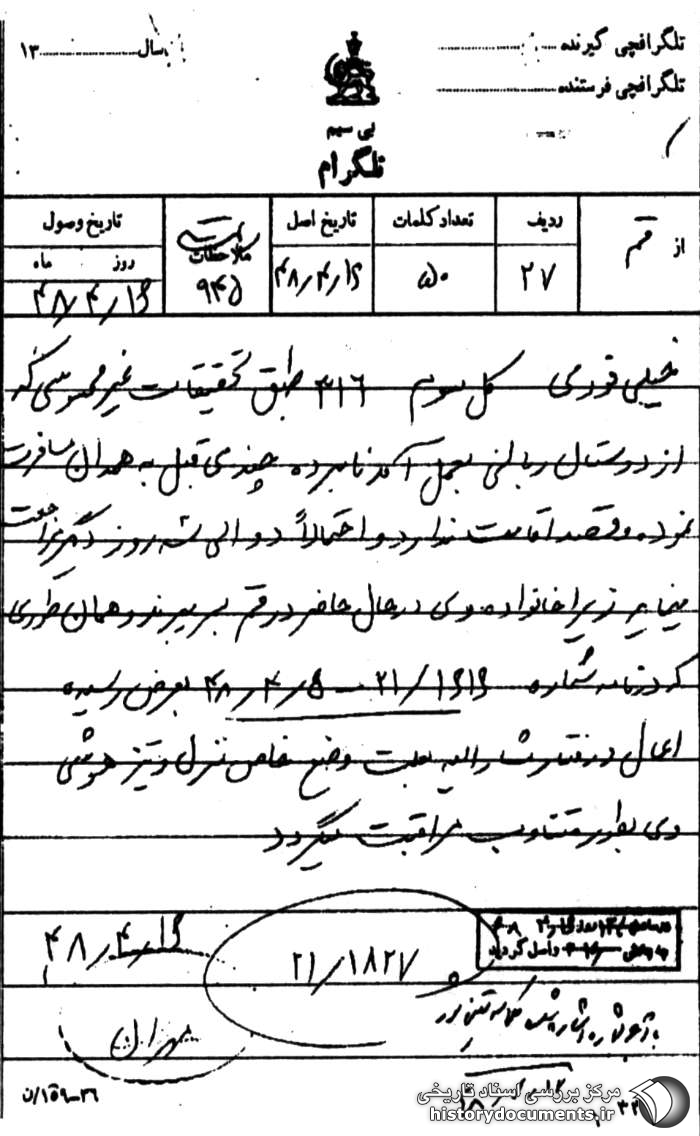 تلگرافچی گیرنده
سال ۱۳
تلگرافچی فرستنده
بی سیم
تلگرام
از قم
ردیف ۲۷
تعداد کلمات ۵۰
تاریخ اصل ۴۸/۴/۱۶
ملاحظات ۹۴۵
تاریخ وصول
روز ماه
۴۸/۴/۱۶
خیلی فوری کل سوم ۳۱۶ طبق تحقیقات غیر محسوسی که
از دوستان ربانی بعمل آمد نامبرده چندی قبل به همدان مسافرت
نموده و قصد اقامت ندارد و احتمالاً دو الی سه روز دیگر مراجعت
مینماید زیرا خانواده وی در حال حاضر در قم بسر میبرند و همان طوری
که در نامه شماره ۲۱/۱۶۱۶ – ۴۸/۴/۵ بعرض رسیده
اعمال و رفتار مشارالیه بعلت وضع خاص منزل و تیز هوشی
وی بطور متناوب مراقبت میگردد
۴۸/۴/۱۶
۲۱/۱۸۲۷
مهران
۱۵۹-۳۶/ن
مرکز بررسی اسناد تاریخی
historydocuments.ir